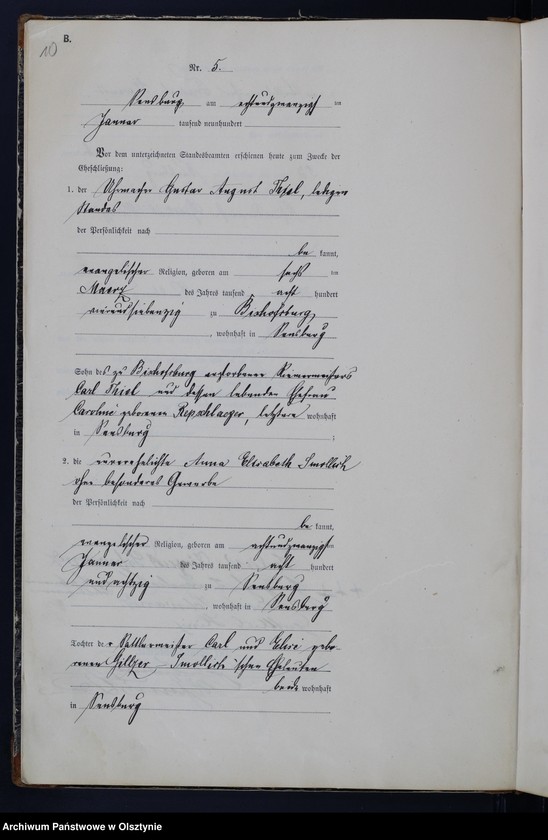 B.
10
Nr. 5.
Sensburg am achtundzwanzigsten
Januar tausend neunhundert
Vor dem unterzeichneten Standesbeamten erschienen heute zum Zwecke der
Eheschließung:
1. der Uhrmacher Gustav August Thiel, ledigen
Standes
der Persönlichkeit nach
be kannt,
evangelischer Religion, geboren am sechsten
Maerz des Jahres tausend acht hundert
vierundsiebenzig zu Bischofsburg,
, wohnhaft in Sensburg
Sohn des zu Bischofsburg verstorbenen Riemermeisters
Carl Thiel und dessen lebenden Ehefrau
Caroline geborenen Repschlaeger, letztere wohnhaft
in Sensburg ;
2. die unverehelichte Anna Elisabeth
ohne besonderes Gewerbe
der Persönlichkeit nach
be kannt,
evangelischer Religion, geboren am achtundzwanzigsten
Januar des Jahres tausend acht hundert
undachtzig zu Sensburg
, wohnhaft in Sensburg
Tochter der Sattlermeister Carl und Elise gebo-
renen 'schen Eheleuten
beide wohnhaft
in Sensburg
Archiwum Państwowe w Olsztynie